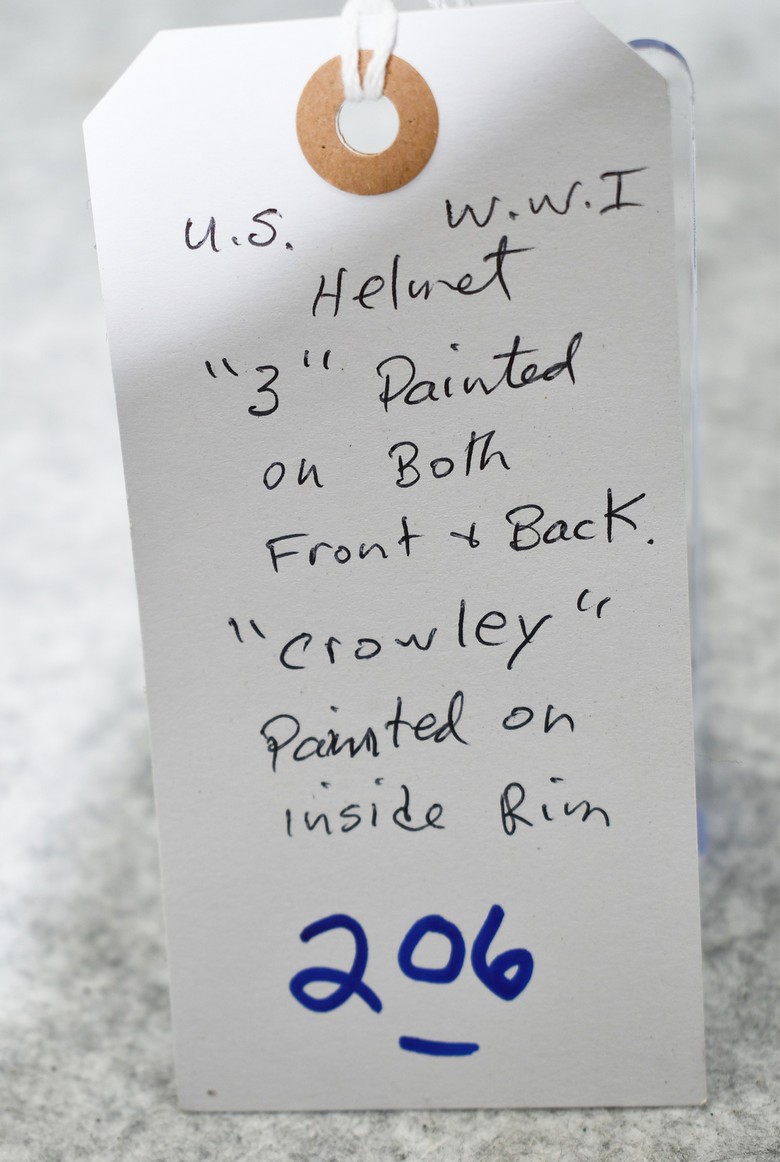 U.S. W.W.I
Helmet
"3" Painted
on Both
Front & Back.
"Crowley"
Painted on
inside Rim
206